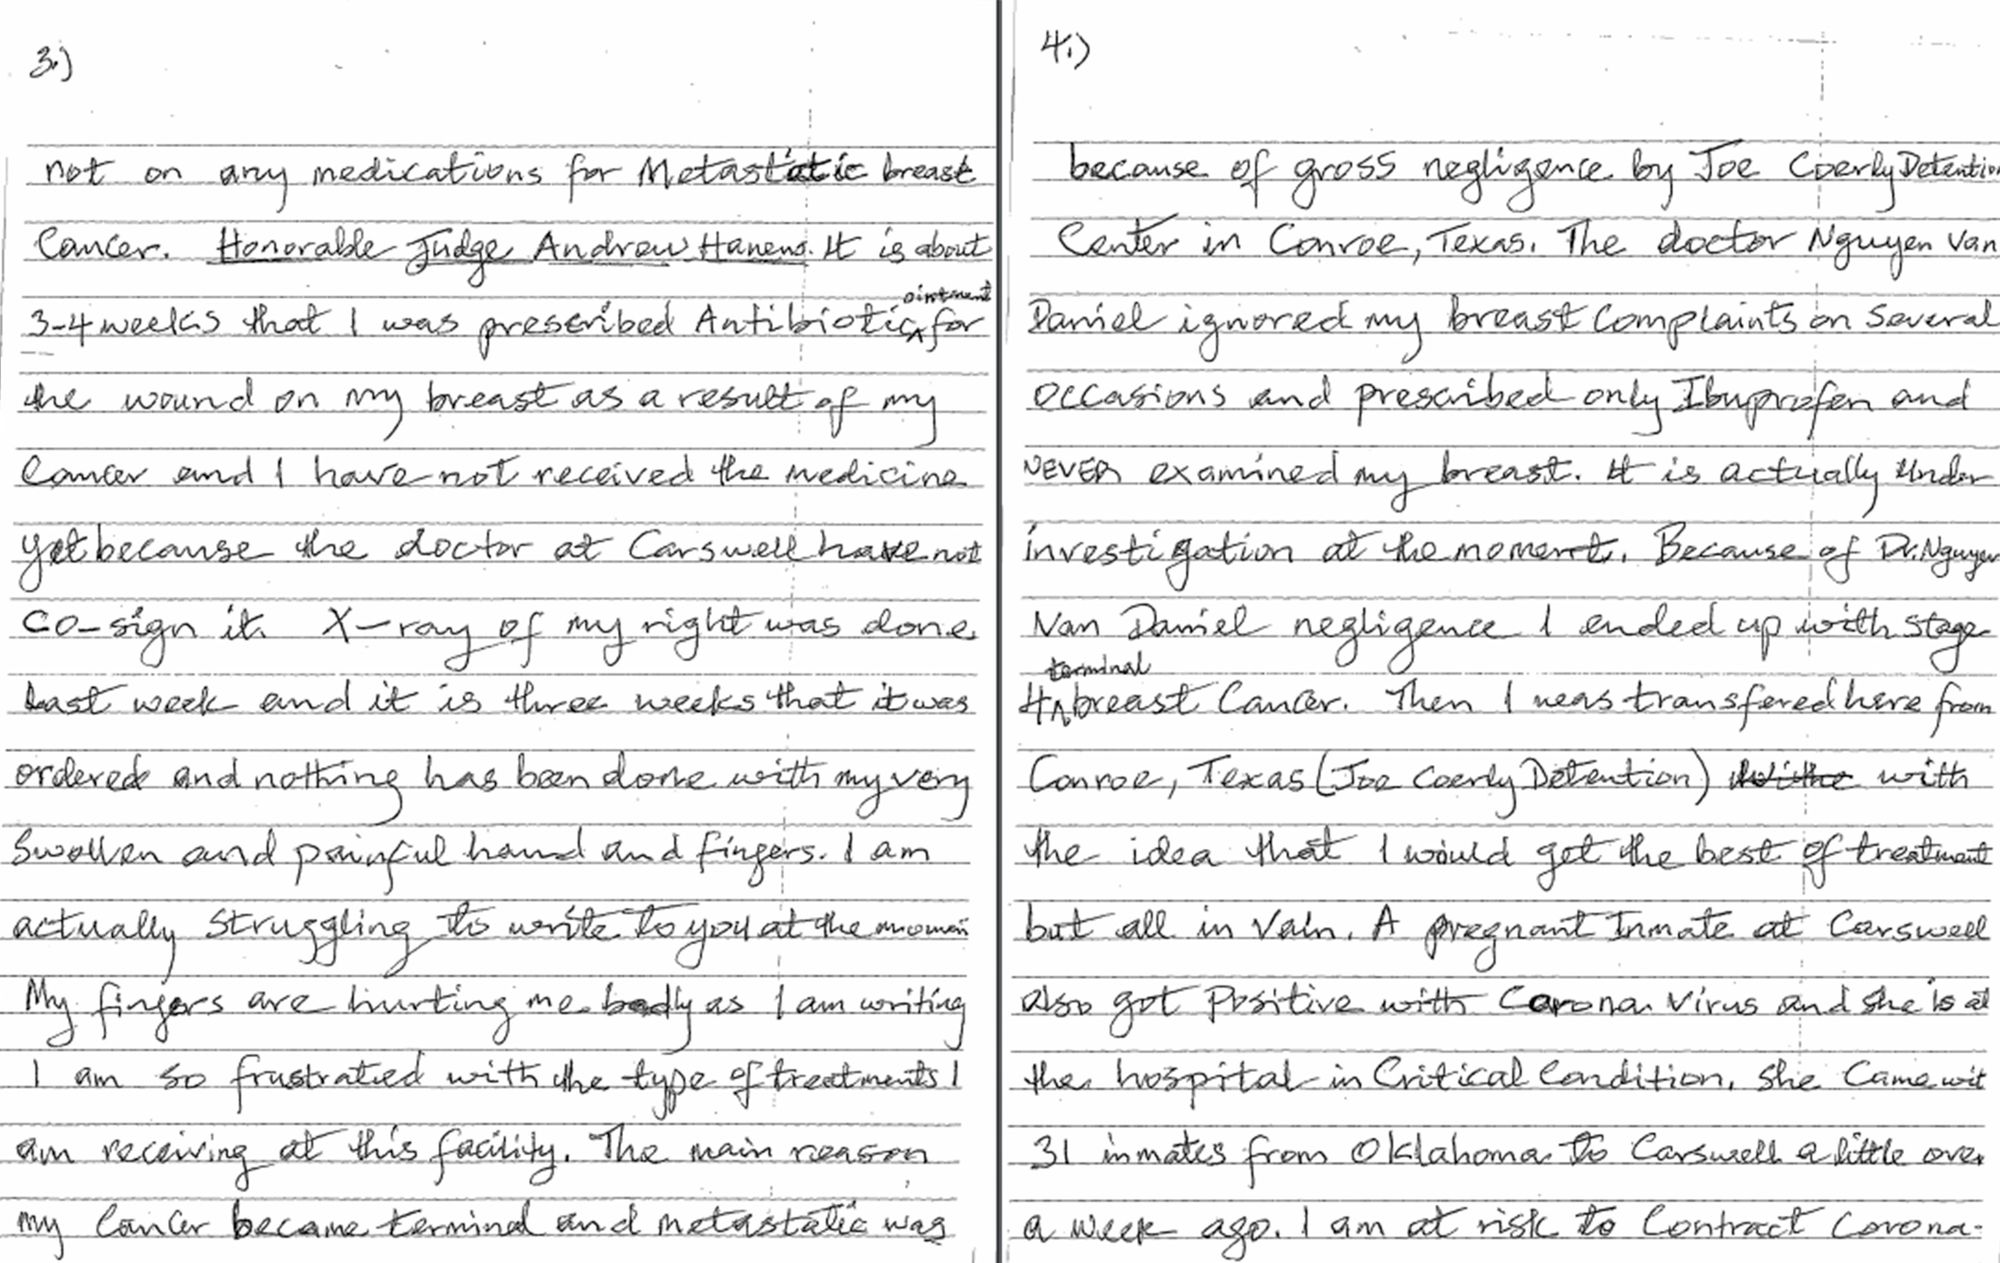 3.)
not on any medications for Metastatic breast
Cancer. Honorable Judge Andrew Hanens. It is about
ointment
3-4 weeks that I was prescribed Antibiotic ^ for
the wound on my breast as a result of my
Cancer and I have not received the medicine
yet because the doctor at Carswell have not
Co-sign it. X-ray of my right was done
last week and it is three weeks that it was
ordered and nothing has been done with my very
Swollen and painful hand and fingers. I am
actually struggling to write to you at the momen
My fingers are hurting me badly as I am writing
I am so frustrated with the type of treatments I
am receiving at this facility. The main reason
my Cancer became terminal and metastatic was
4.)
because of gross negligence by Joe Coerly Detention
Center in Conroe, Texas. The doctor Nguyen Van
Daniel ignored my breast Complaints on Several
occasions and prescribed only Ibuprofen and
NEVER examined my breast. It is actually under
investigation at the moment. Because of Dr. Nguyen
Van Daniel negligence I ended up with stage
terminal
4 ^ breast Cancer. Then I was transfered here from
Conroe, Texas (Joe Coerly Detention) with
the idea that I would get the best of treatment
but all in Vain. A pregnant Inmate at Carswell
also got Positive with Corona Virus and she is at
the hospital in Critical Condition. She Came wit
31 inmates from Oklahoma to Carswell a little over
a week ago. I am at risk to Contract Corona-